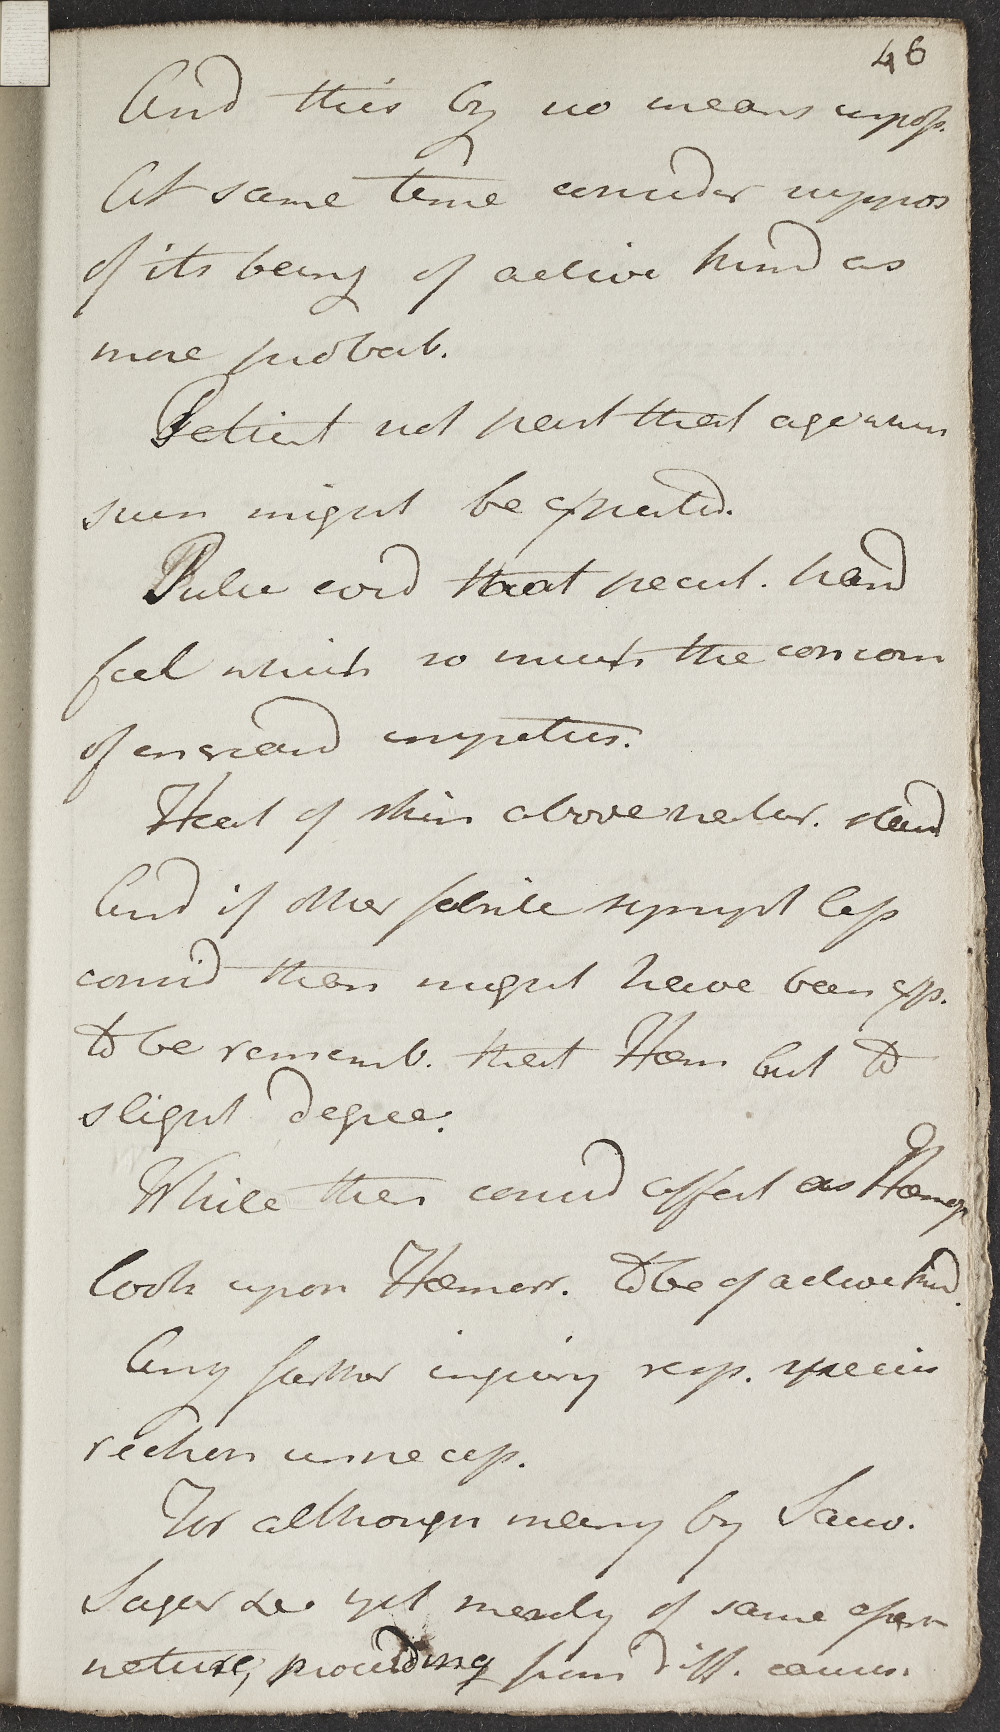 46
And this by no means imposs.
At same time consider suppos
of its being of active kind as
more probab.
Patient not past that age when
such might be expected.
Pulse could that pecul. hard
feel which so much the concom
of increasd impetus.
Heat of skin above natur. stand
And if other febrile sympt less
consid than might have been exp.
to be rememb. that Hæm but to
slight degree.
While then consid affect as Hæmop
look upon Hæmorr. to be of active kind.
Any farther inquiry resp. species
reckon unnecess.
For although many by Sauv.
Sagar &c. yet merely of same
nature, proceeding from diff. causes.